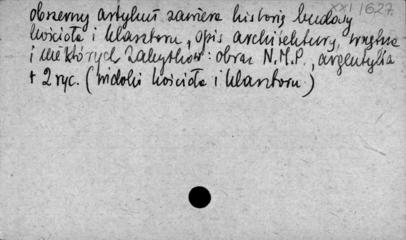 XXI/627
obszerny artykuł zawiera historię budowy
kościoła i klasztoru, opis architektury, wnętrza
i niektórych zabytków: obraz N.M.P., argentylia
+ 2 ryc. (widoki kościoła i klasztoru)